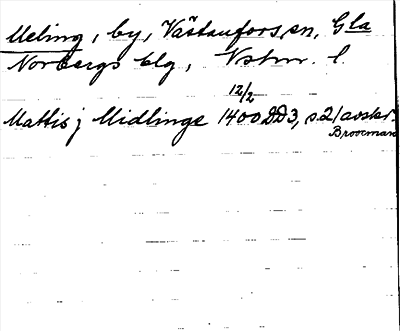 Meling, by, Västanfors sn, Gla
Norbergs blg, Vstm. l.
12/2
Mattis j Midlinge 1400 DD3, s.21 avskr.
Brooman